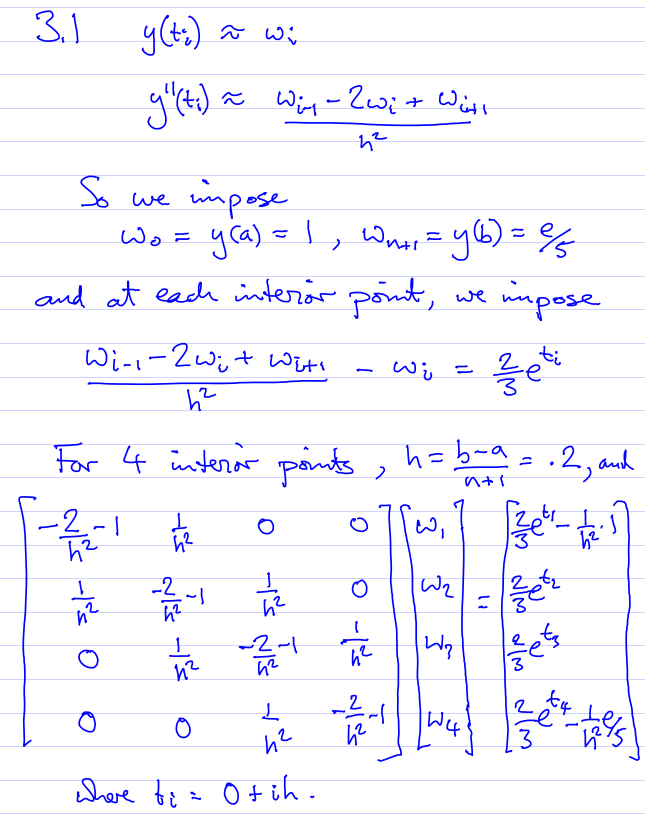 3.1 y(tᵢ) ≈ wᵢ
y''(tᵢ) ≈ (wᵢ₋₁ - 2wᵢ + wᵢ₊₁)/h²
So we impose
w₀ = y(a) = 1 , wₙ₊₁ = y(b) = e/5
and at each interior point, we impose
(wᵢ₋₁ - 2wᵢ + wᵢ₊₁)/h² - wᵢ = 2/3 e^{tᵢ}
For 4 interior points , h = (b-a)/(n+1) = .2, and
[ -2/h² -1   1/h²   0   0 ] [ w₁ ]   [ 2/3 e^{t₁} - 1/h² · 1 ]
[ 1/h²   -2/h² -1   1/h²   0 ] [ w₂ ] = [ 2/3 e^{t₂} ]
[ 0   1/h²   -2/h² -1   1/h² ] [ w₃ ]   [ 2/3 e^{t₃} ]
[ 0   0   1/h²   -2/h² -1 ] [ w₄ ]   [ 2/3 e^{t₄} - 1/h² e/5 ]
where tᵢ = 0 + ih .